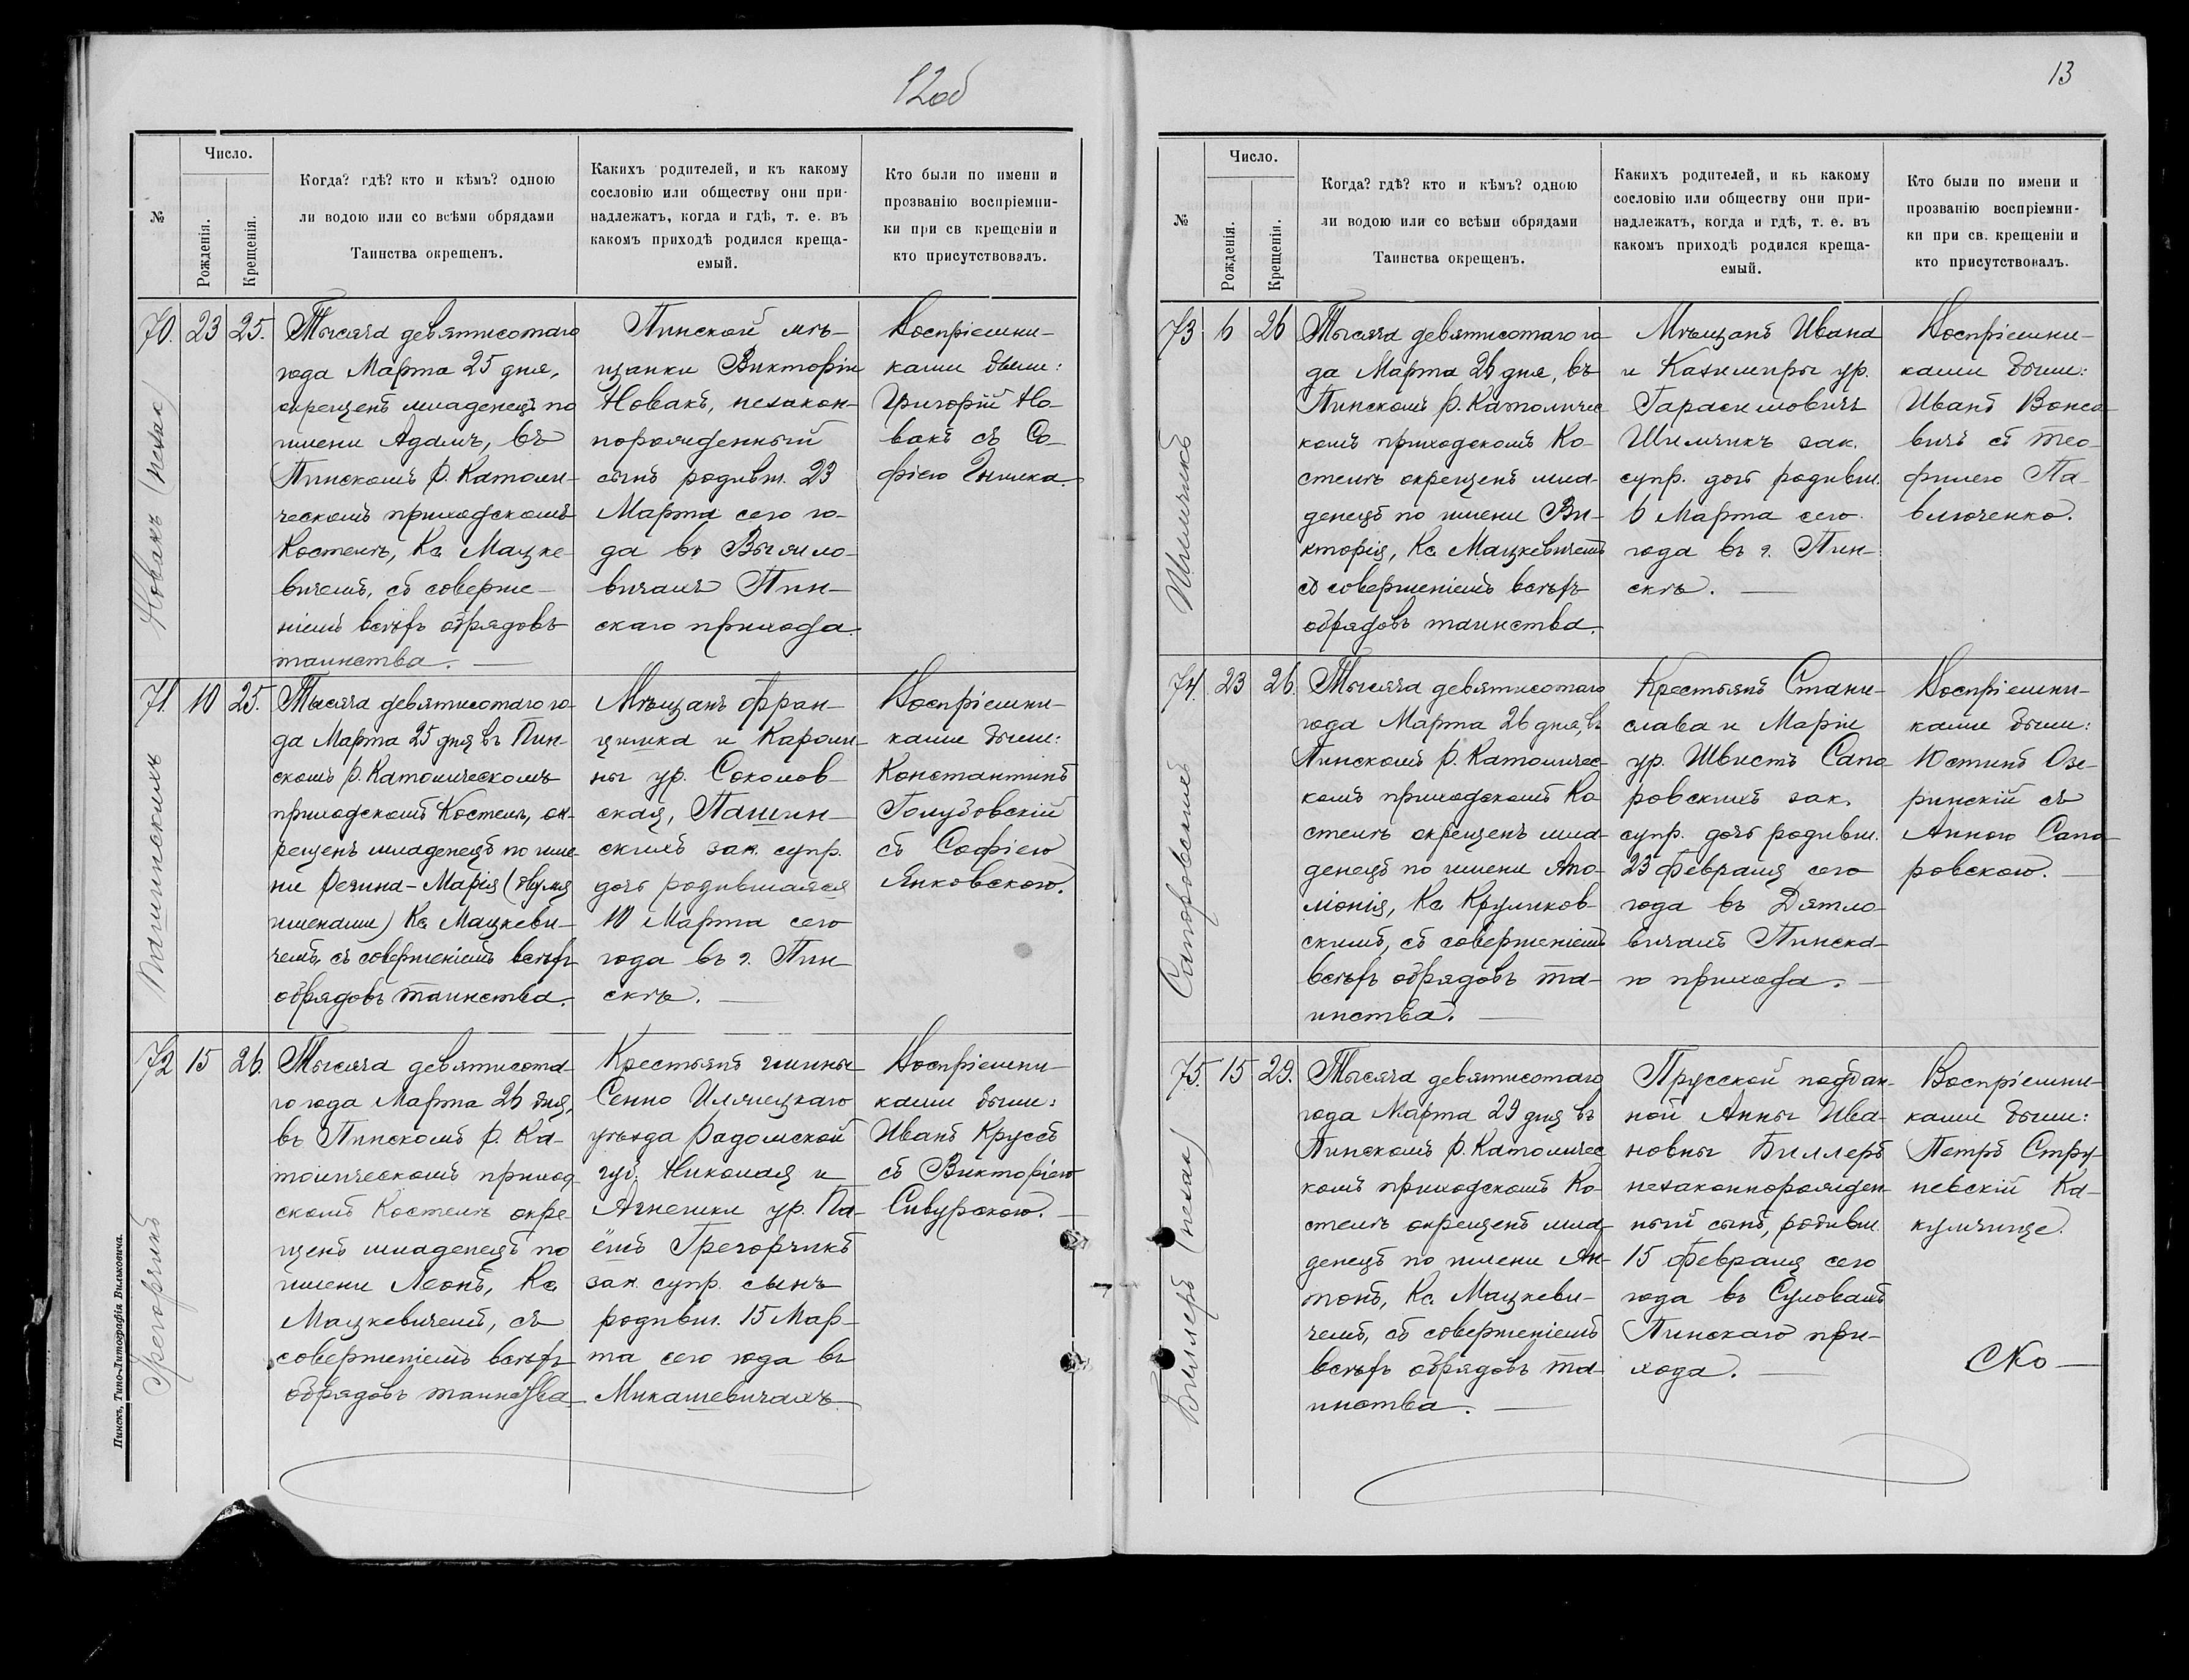 12об
№
Число.
Рожденія.
Крещенія.
Когда? гдѣ? кто и кѣмъ? одною
ли водою или со всѣми обрядами
Таинства окрещенъ.
Какихъ родителей, и къ какому
сословію или обществу они при-
надлежатъ, когда и гдѣ, т. е. въ
какомъ приходѣ родился креща-
емый.
Кто были по имени и
прозванію воспріемни-
ки при св крещеніи и
кто присутствовалъ.
70. 23 25.
Новакъ (незак)
Тысяча девятисотаго
года Марта 25 дня,
окрещенъ младенецъ по
имени Адамъ, въ
Пинскомъ Р. Католи-
ческомъ приходскомъ
Костелѣ, Кс. Мацке-
вичемъ, съ соверше-
ніемъ всѣхъ обрядовъ
таинства.
Пинской мѣ-
щанки Викторіи
Новакъ, незакон-
норожденный
сынъ родивш. 23
Марта сего го-
да въ
Пин-
скаго прихода.
Воспріемни-
ками были:
Григорій Но-
вакъ съ Со-
фіею
71. 10 25.
Пашинскихъ
Тысяча девятисотаго го-
да Марта 25 дня въ Пин-
скомъ Р. Католическомъ
приходскомъ Костелѣ, ок-
рещенъ младенецъ по име-
ни Регина-Марія (двумя
именами) Кс. Мацкеви-
чемъ, съ совершеніемъ всѣхъ
обрядовъ таинства.
Мѣщанъ Фран-
цишка и Кароли-
ны ур. Соколов-
ская, Пашин-
скихъ зак. супр.
дочь родившаяся
10 Марта сего
года въ г. Пин
скѣ.
Воспріемни-
ками были:
Константинъ
Голубовскій
съ Софіею
Янковскою.
72 15 26.
Грегорчикъ
Тысяча девятисота
го года Марта 26 дня,
въ Пинскомъ Р. Ка-
толическомъ приход
скомъ Костелѣ окре-
щенъ младенецъ по
имени Леонъ, Кс.
Мацкевичемъ, съ
совершеніемъ всѣхъ
обрядовъ таинства
Крестьянъ гмины
Сенно Илжецкаго
уѣзда Радомской
губ. Николая и
Агнешки ур. Па-
ёкъ Грегорчикъ
зак. супр. сынъ
родивш. 15 Мар-
та сего года въ
Микашевичахъ
Воспріемни-
ками были:
Иванъ Круссъ
съ Викторіею
Сивурскою.
Пинскъ, Типо-Литографія Вильковича.
13
№
Число.
Рожденія.
Крещенія.
Когда? гдѣ? кто и кѣмъ? одною
ли водою или со всѣми обрядами
Таинства окрещенъ.
Какихъ родителей, и къ какому
сословію или обществу они при-
надлежатъ, когда и гдѣ, т. е. въ
какомъ приходѣ родился креща-
емый.
Кто были по имени и
прозванію воспріемни-
ки при св. крещеніи и
кто присутствовалъ.
73 6 26
Шимчикъ
Тысяча девятисотаго го-
да Марта 26 дня, въ
Пинскомъ Р. Католичес
комъ приходскомъ Ко-
стелѣ окрещенъ мла-
денецъ по имени Ви-
кторія, Кс. Мацкевичемъ
съ совершеніемъ всѣхъ
обрядовъ таинства.
Мѣщанъ Ивана
и Казимиры ур.
Гарасимовичъ
Шимчикъ зак.
супр. дочь родивш.
6 Марта сего
года въ г. Пин-
скѣ.
Воспріемни-
ками были:
Иванъ Вонсо-
вичъ съ Тео-
филею Па-
влюченко.
74. 23 26.
Сапоровскихъ
Тысяча девятисотаго
года Марта 26 дня, въ
Пинскомъ Р. Католичес-
комъ приходскомъ Ко
стелѣ окрещенъ мла-
денецъ по имени Апо-
лонія, Кс. Круликов-
скимъ, съ совершеніемъ
всѣхъ обрядовъ та-
инства.
Крестьянъ Стани-
слава и Маріи
ур. Швистъ Сапо
ровскихъ зак.
супр. дочь родивш.
23 Февраля сего
года въ Дятло-
вичахъ Пинска-
го прихода.
Воспріемни-
ками были:
Юстинъ Озе-
ринскій съ
Анною Сапо-
ровскою.
75. 15 29.
Биллеръ (незак)
Тысяча девятисотаго
года Марта 29 дня въ
Пинскомъ Р. Католичес
комъ приходскомъ Ко-
стелѣ окрещенъ мла-
денецъ по имени Ан-
тонъ, Кс. Мацкеви-
чемъ, съ совершеніемъ
всѣхъ обрядовъ та-
инства.
Прусской поддан-
ной Анны Ива-
новны Биллеръ
незаконнорожден-
ный сынъ, родивш.
15 Февраля сего
года въ
Пинскаго при-
хода.
Воспріемни-
ками были:
Петръ Стру-
певскій